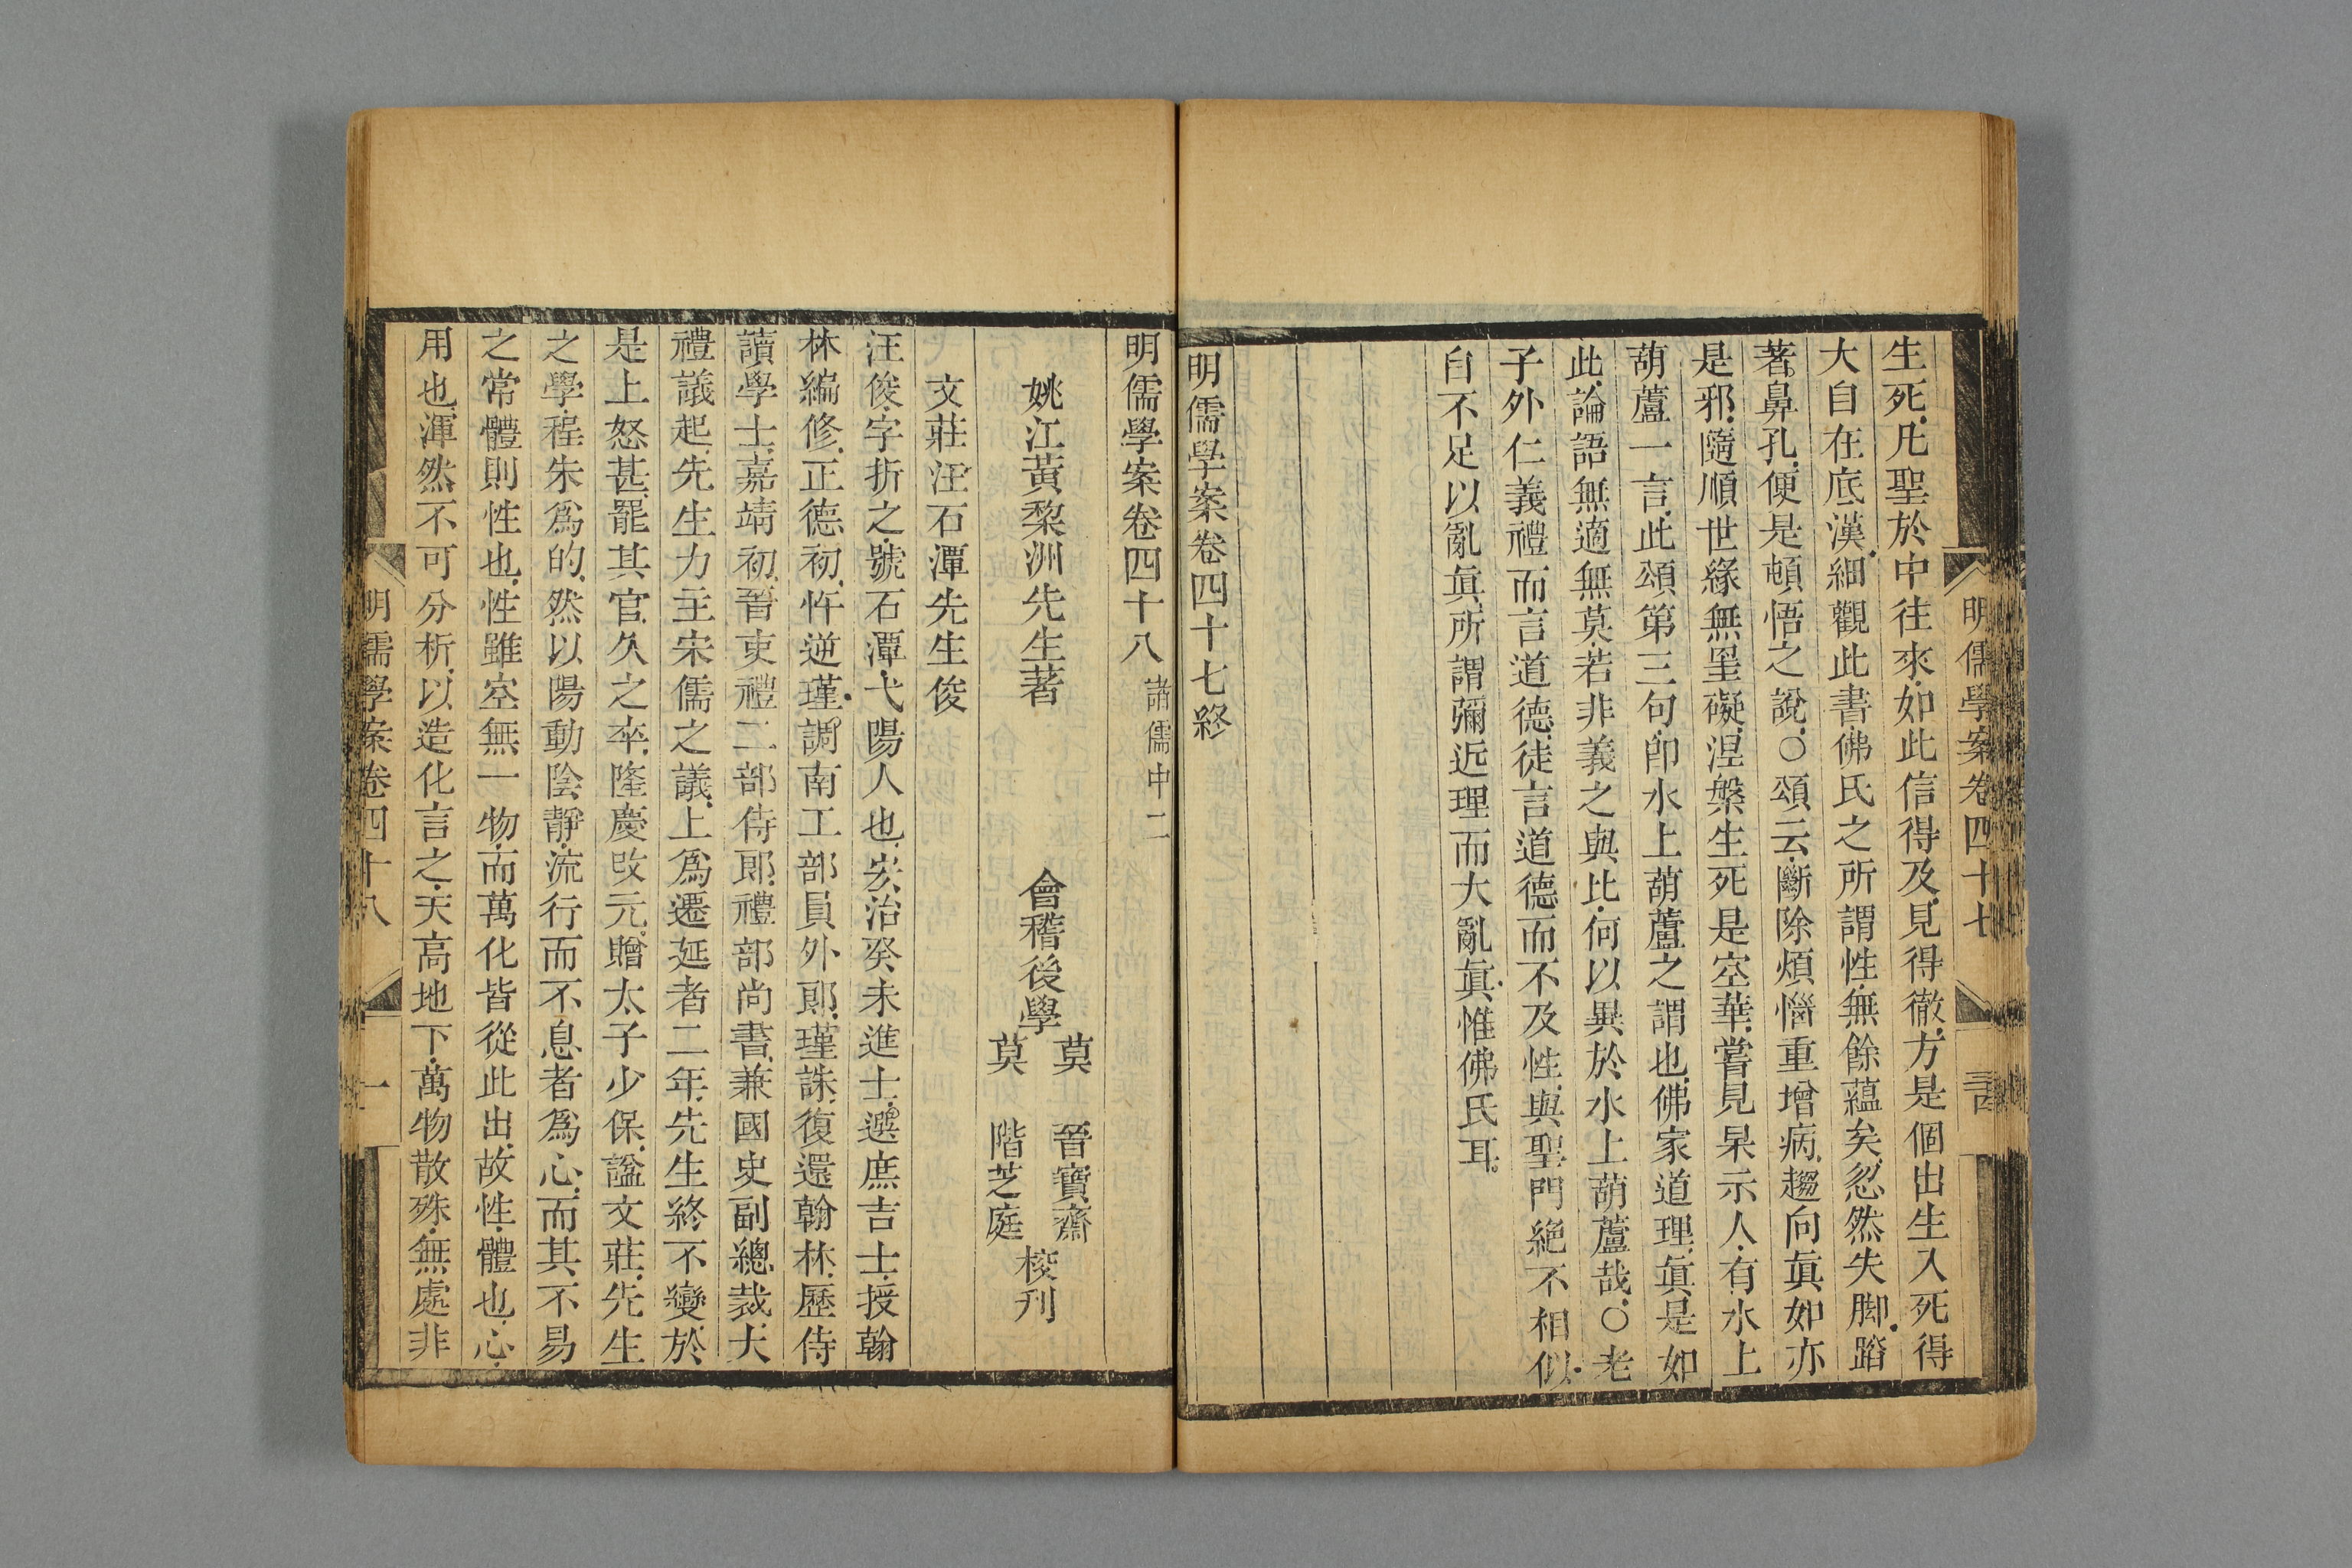 明儒學案卷四十七
生死.凡聖於中往來.如此信得及.見得徹.方是個出生入死得
大自在底漢.細觀此書.佛氏之所謂性.無餘蘊矣.忽然失脚.踏
著鼻孔.便是頓悟之說.○頌云.斷除煩惱重增病.趨向眞如亦
是邪.隨順世緣無罣礙.涅槃生死是空華.嘗見杲示人.有水上
葫蘆一言.此頌第三句.卽水上葫蘆之謂也.佛家道理.眞是如
此.論語無適無莫.若非義之與比.何以異於水上葫蘆哉.○老
子外仁義禮而言道德.徒言道德而不及性.與聖門絶不相似.
自不足以亂眞.所謂彌近理而大亂眞.惟佛氏耳.
明儒學案卷四十七終
明儒學案卷四十八 諸儒中二
姚江黃黎洲先生著 會稽後學 莫 晉寶齋 莫 階芝庭 梭刊
文莊汪石潭先生俊
汪俊.字折之.號石潭.弋陽人也.宏治癸未進士.選庶吉士.授翰
林編修.正德初.忤逆瑾.調南工部員外郞.瑾誅.復還翰林.歷侍
讀學士.嘉靖初.晉吏禮二部侍郞.禮部尚書.兼國史副總裁.大
禮議起.先生力主宋儒之議.上爲遷延者二年.先生終不變.於
是上怒甚.罷其官.久之卒.隆慶改元.贈太子少保.諡文莊.先生
之學.程朱爲的.然以陽動陰靜.流行而不息者爲心.而其不易
之常體則性也.性雖空無一物.而萬化皆從此出.故性.體也.心.
用也.渾然不可分析.以造化言之.天高地下.萬物散殊.無處非
明儒學案卷四十八 一